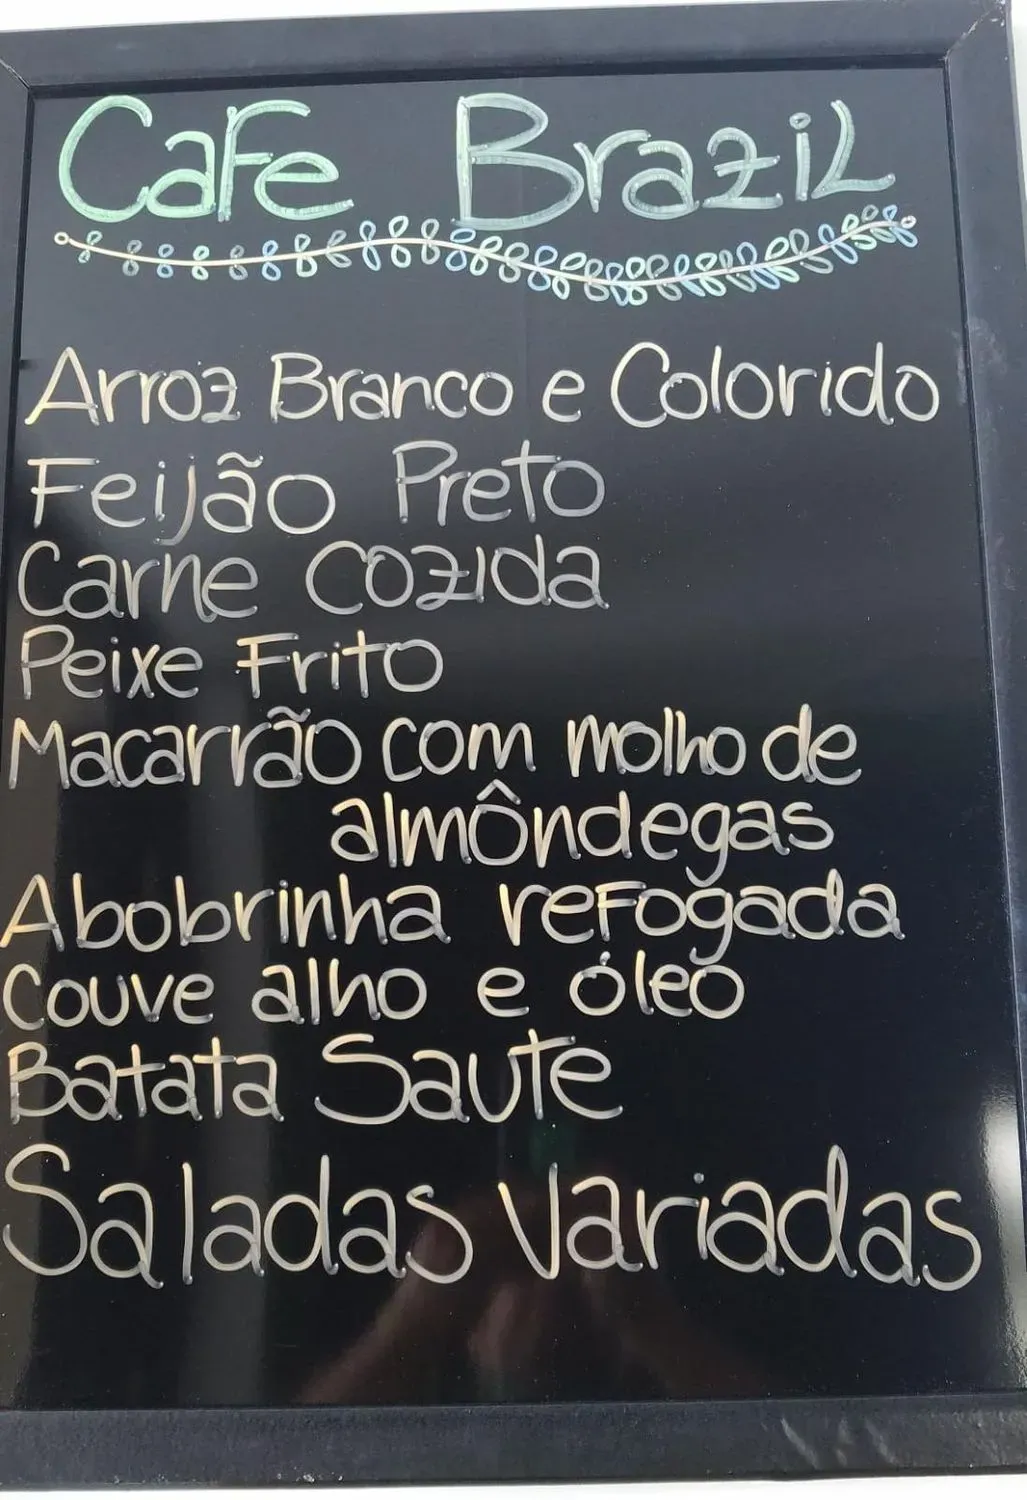 Cafe Brazil
Arroz Branco e Colorido
Feijão Preto
Carne Cozida
Peixe Frito
Macarrão com molho de
almôndegas
Abobrinha refogada
Couve alho e óleo
Batata Saute
Saladas Variadas